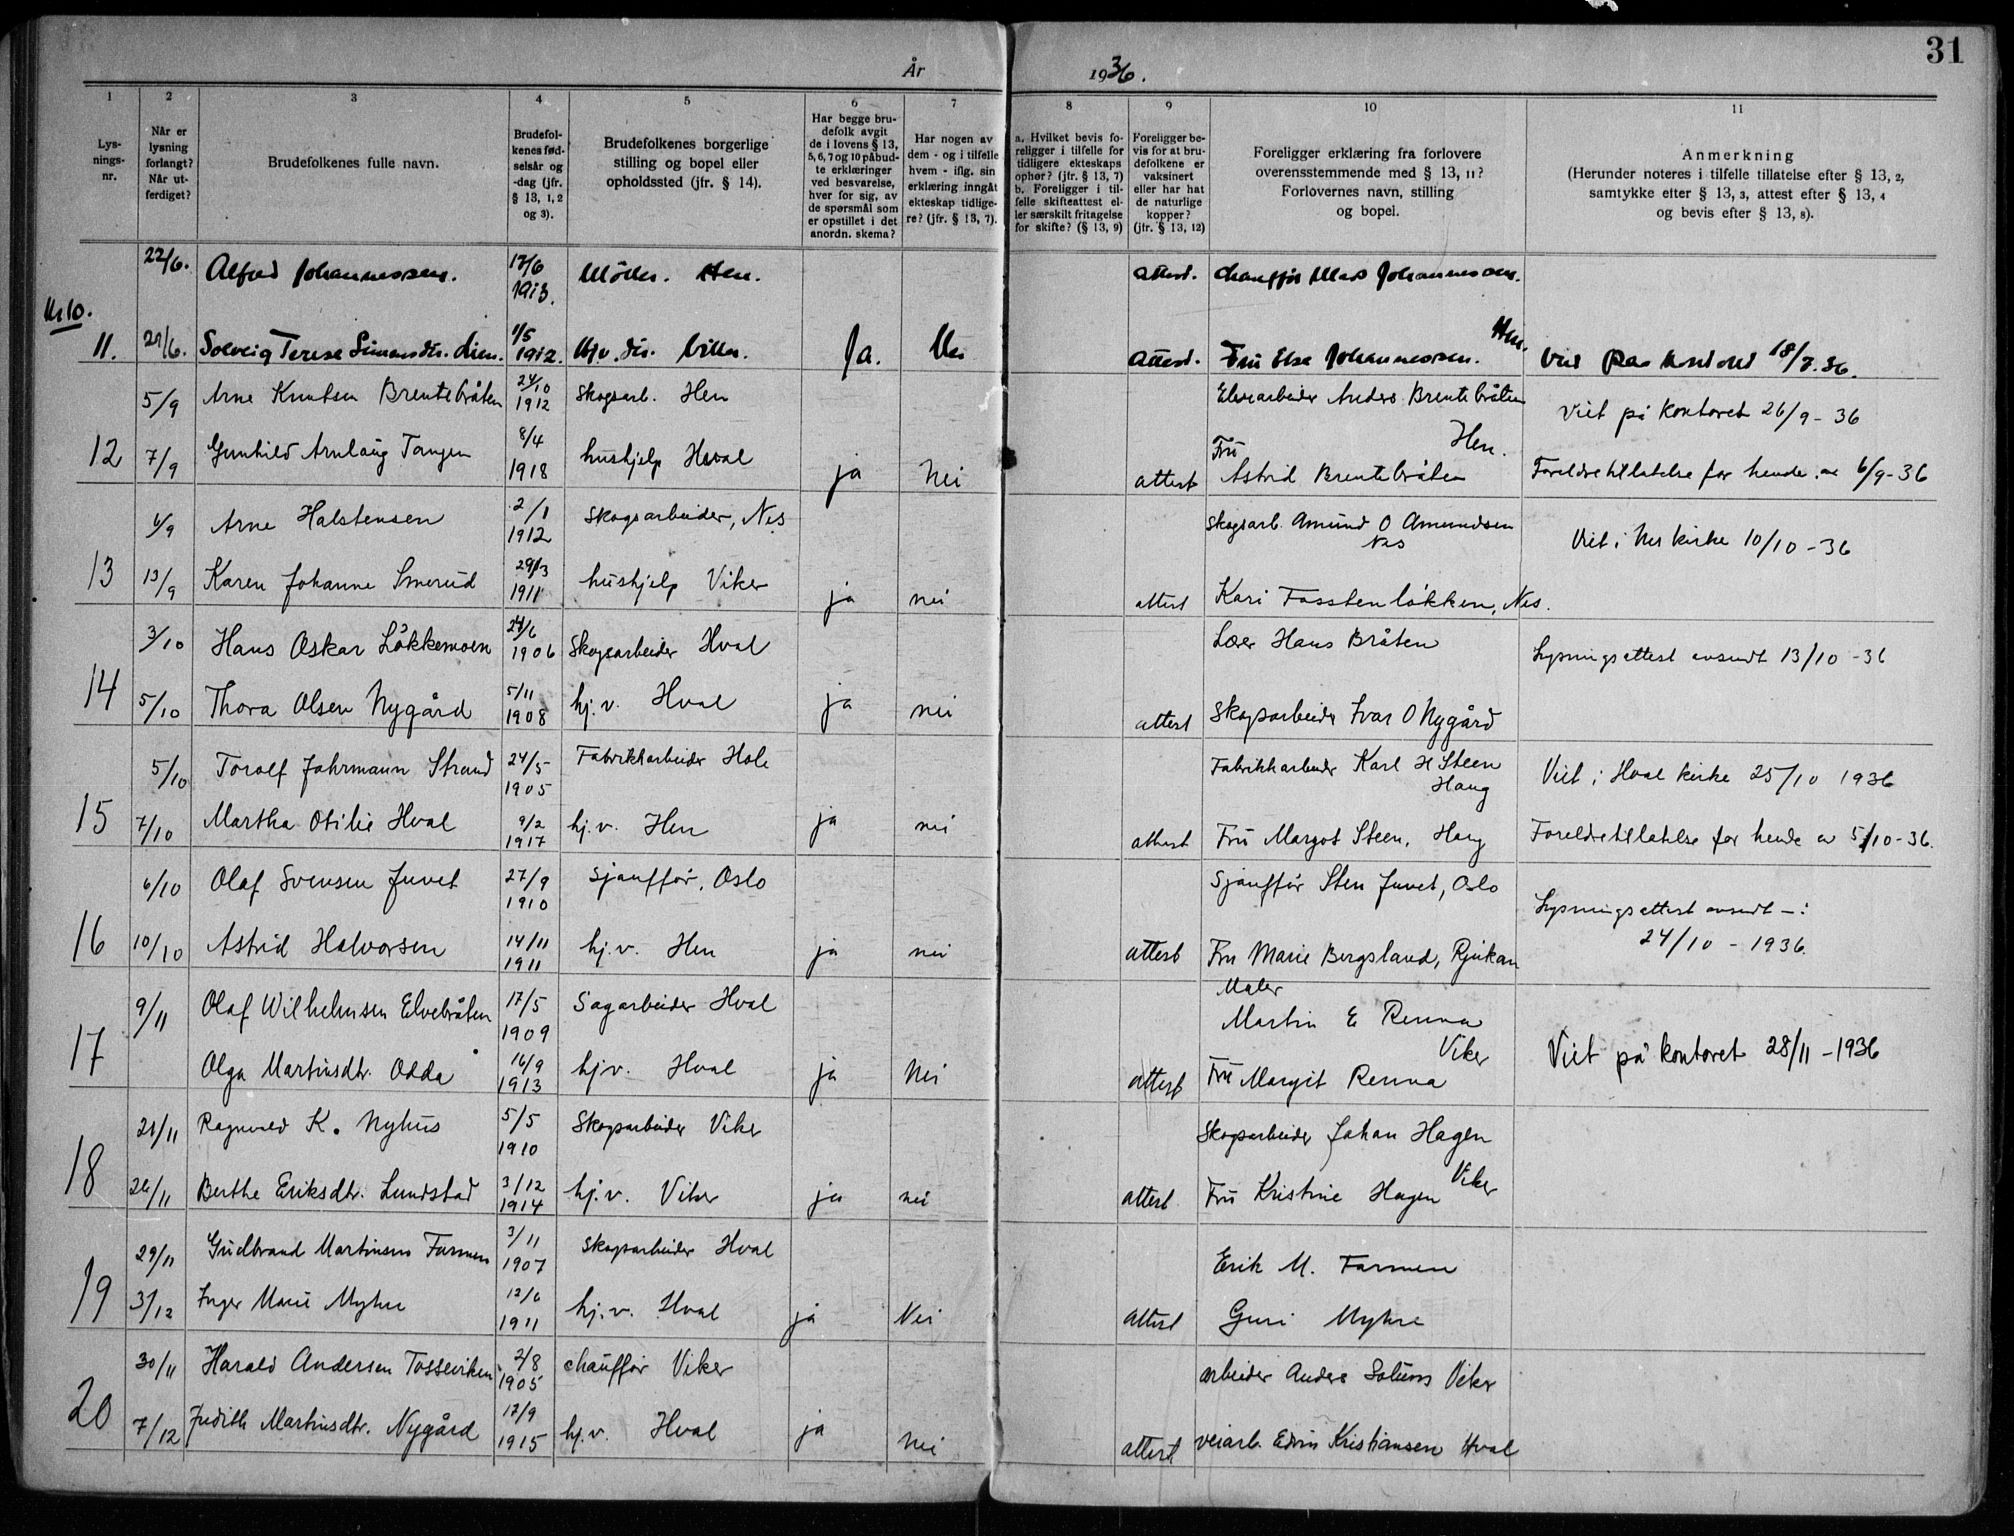 31
År 1936.
1 2 3 4 5 6 7 8 9 10 11
Lys-
nings-
nr.
Når er
lysning
forlangt?
Når ut-
ferdiget?
Brudefolkenes fulle navn.
Brudefol-
kenes fød-
selsår og
-dag (jfr.
§ 13, 1, 2
og 3).
Brudefolkenes borgerlige
stilling og bopel eller
opholdssted (jfr. § 14).
Har begge bru-
defolk avgit
de i lovens § 13,
5, 6, 7 og 10 påbud-
te erklæringer
ved besvarelse,
hver for sig, av
de spørsmål som
er opstillet i det
anordn. skema?
Har nogen av
dem - og i tilfelle
hvem - iflg. sin
erklæring inngåt
ekteskap tidlige-
re? (jfr. § 13, 7).
a. Hvilket bevis fo-
religger i tilfelle for
tidligere ekteskaps
ophør? (jfr. § 13, 7)
b. Foreligger i til-
felle skifteattest el-
ler særskilt fritagelse
for skifte? (§ 13, 9)
Foreligger be-
vis for at bru-
defolkene er
vaksinert
eller har hat
de naturlige
kopper?
(jfr. § 13, 12)
Foreligger erklæring fra forlovere
overensstemmende med § 13, 11?
Forlovernes navn, stilling
og bopel.
Anmerkning
(Herunder noteres i tilfelle tillatelse efter § 13, 2,
samtykke efter § 13, 3, attest efter § 13, 4
og bevis efter § 13, 8).
22/6. Alfred Johannessen. 17/6 1913. Møller. Hen. attest. chauffør Johannessen.
Nr 10.
Hen.
11. 29/6. Solveig Terese Simensdtr. Lien. 1/5 1912. Hjv. dtr. Ja. Nei attest. Fru Else Johannessen. Viet på kontoret 18/7.36.
5/9 Arne Knutsen Brentebråten 24/10 1912 Skogsarb. Hen Elvearbeider Anders Brentebråten Viet på kontoret 26/9 - 36
Hen.
12 7/9 Gunhild Arnlaug Tangen 8/4 1918 hushjelp Hval ja Nei attest Fru Astrid Brentebråten Foreldretillatelse for hende av 6/9-36
6/9 Arne Halstensen 2/1 1912 Skogsarbeider, Nes Skogsarb. Amund O Amundsen Nes Viet i Nes kirke 10/10 - 36
13 13/9 Karen Johanne Smerud 29/3 1911 hushjelp Viker ja nei attest Kari Fosstenløkken, Nes.
3/10 Hans Oskar Løkkemoen 24/6 1906 Skogsarbeider Hval Lærer Hans Bråten Lysningsattest avsendt 13/10 - 36
14 5/10 Thora Olsen Nygård 5/11 1908 hj.v. Hval ja nei attest Skogsarbeider Ivar O Nygård
5/10 Torolf Johrmann Strand 24/5 1905 Fabrikkarbeider Hole Fabrikkarbeider Karl H Steen Haug Viet i Hval kirke 25/10 1936
15 7/10 Martha Otilie Hval 9/2 1917 hj.v. Hen ja nei attest Fru Margot Steen, Haug Foreldretillatelse for hende av 5/10-36.
6/10 Olaf Svensen Juvet 27/9 1910 Sjauffør, Oslo Sjauffør Sten Juvet, Oslo Lysningsattest avsendt - :
24/10 - 1936.
16 10/10 Astrid Halvorsen 14/11 1911 hj.v. Hen ja nei attest Fru Marie Bergsland, Rjukan
9/11 Olaf Wilhelmsen Elvebråten 17/5 1909 Sagarbeider Hval Maler Martin E Renna Viker Viet på kontoret 28/11 - 1936
17 Olga Martinsdtr. Odda 16/9 1913 hjv. Hval ja Nei attest Fru Margit Renna
21/11 Ragnvald K. Nyhus 5/5 1910 Skogsarbeider Viker Skogsarbeider Johan Hagen Viker
18 26/11 Berthe Eriksdtr. Lundstad 3/12 1914 hj.v. Viker ja nei attest Fru Kristine Hagen
29/11 Gudbrand Martinsen Farmen 3/11 1907 Skogsarbeider Hval Erik M. Farmen
19 3/12 Inger Marie Myhre 12/6 1911 hj.v. Hval ja Nei attest Guri Myhre
30/11 Harald Andersen Tosseviken 2/8 1905 chauffør Viker arbeider Anders Solum Viker
20 7/12 Judith Martinsdtr. Nygård 17/9 1915 hj.v. Hval ja nei attest veiarb. Edvin Kristiansen Hval